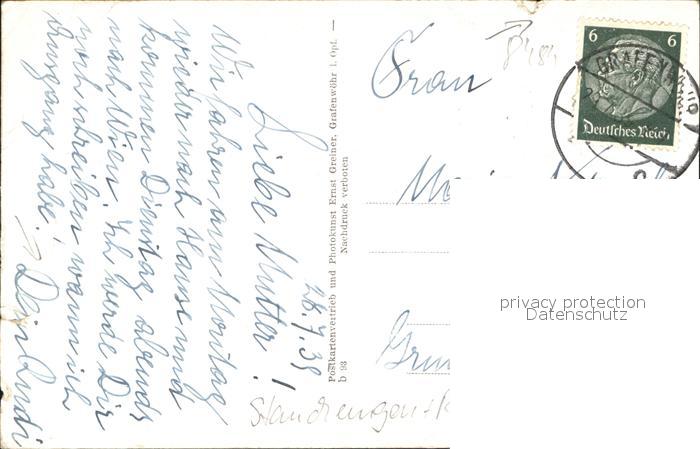 28.7.39
Liebe Mutter!
Wir fahren am Montag
wieder nach Hause und
kommen Dienstag abends
nach Wien. Ich werde Dir
noch schreiben wann ich
Ausgang habe.
Dein Rudi
Postkartenvertrieb und Photokunst Ernst Greiner, Grafenwöhr i. Opf.
Nachdruck verboten
b 93
Frau
6 6
Deutsches Reich
GRAFENWÖHR
privacy protection
Datenschutz